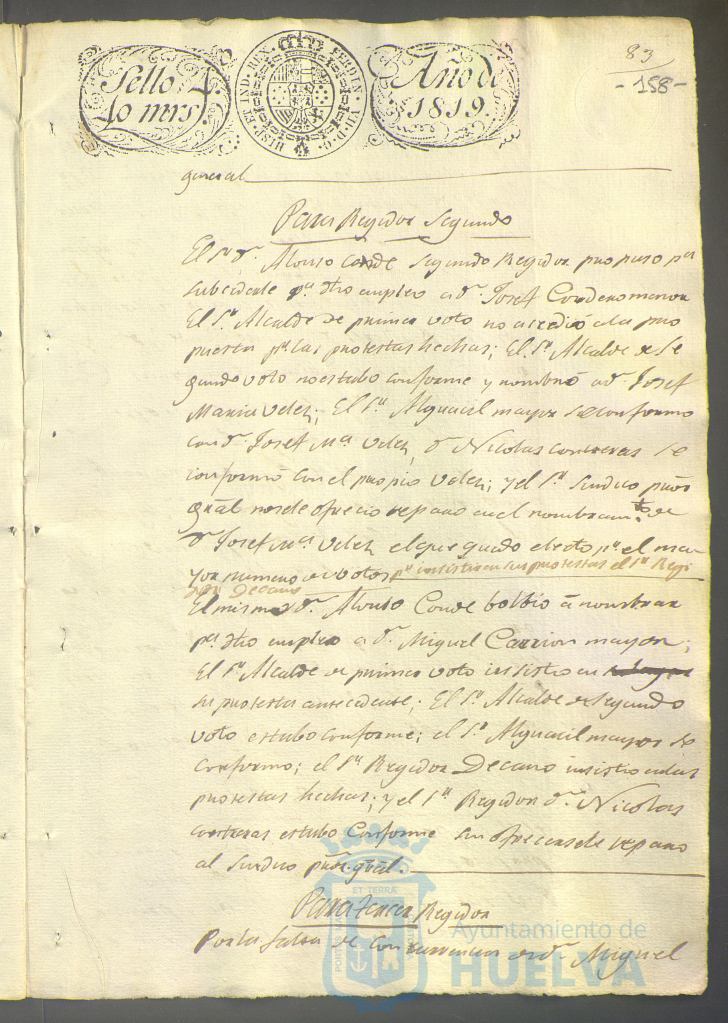 Sello 4º
40 mrs.
HISP. ET IND. REX. FERDIN. VII. D. G.
Año de
1819.
83
-158-
general
Para Regidor Segundo
El Sr. Dn. Alonso Conde Segundo Regidor propuso pa.
subcedente pa. dho empleo a Dn. Josef Cordero menor
El Sr. Alcalde de primer voto no accedió a la pro
puesta pr. las protestas hechas; El Sr. Alcalde de Se
gundo voto no estubo conforme y nombró a Dn. Josef
Maria Velez; El Sr. Alguacil mayor se conformo
con Dn. Josef Ma. Velez, Dn. Nicolas Contreras se
conformó con el propio Velez; y el Sr. Sindico procr.
gral no se le ofrecio reparo en el nombramto. de
Dn. Josef Ma. Velez el que quedo electo pr. el ma
yor numero de votos pr. insistir en sus protestas el Sr. Regi
dor Decano
El mismo Dn. Alonso Conde bolbio á nombrar
pa. dho empleo a Dn. Miguel Carrion mayor;
El Sr. Alcalde de primer voto insistio en
su protesta antecedente; El Sr. Alcalde de Segundo
voto estubo conforme; el Sr. Alguacil mayor se
conformo; el Sr. Regidor Decano insistio en las
protestas hechas; y el Sr. Regidor Dn. Nicolas
Contreras estubo conforme sin ofrecersele reparo
al Sindico procr. gral.
Para tercer Regidor
Por la falta de concurrencia de Dn. Miguel
Ayuntamiento de
HUELVA